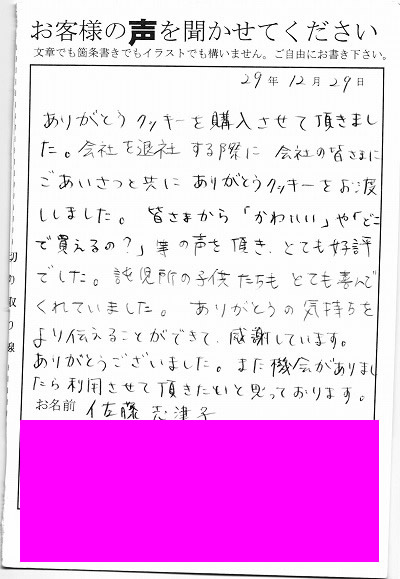 お客様の声を聞かせてください
文章でも箇条書きでもイラストでも構いません。ご自由にお書き下さい。
29年12月29日
ありがとうクッキーを購入させて頂きまし
た。会社を退社する際に会社の皆さまに
ごあいさつと共にありがとうクッキーをお渡
ししました。皆さまから「かわいい」や「どこ
で買えるの?」等の声を頂き、とても好評
でした。託児所の子供たちもとても喜んで
くれていました。ありがとうの気持ちを
より伝えることができて、感謝しています。
ありがとうございました。また機会がありまし
たら利用させて頂きたいと思っております。
お名前 佐藤志津子
切り取り線